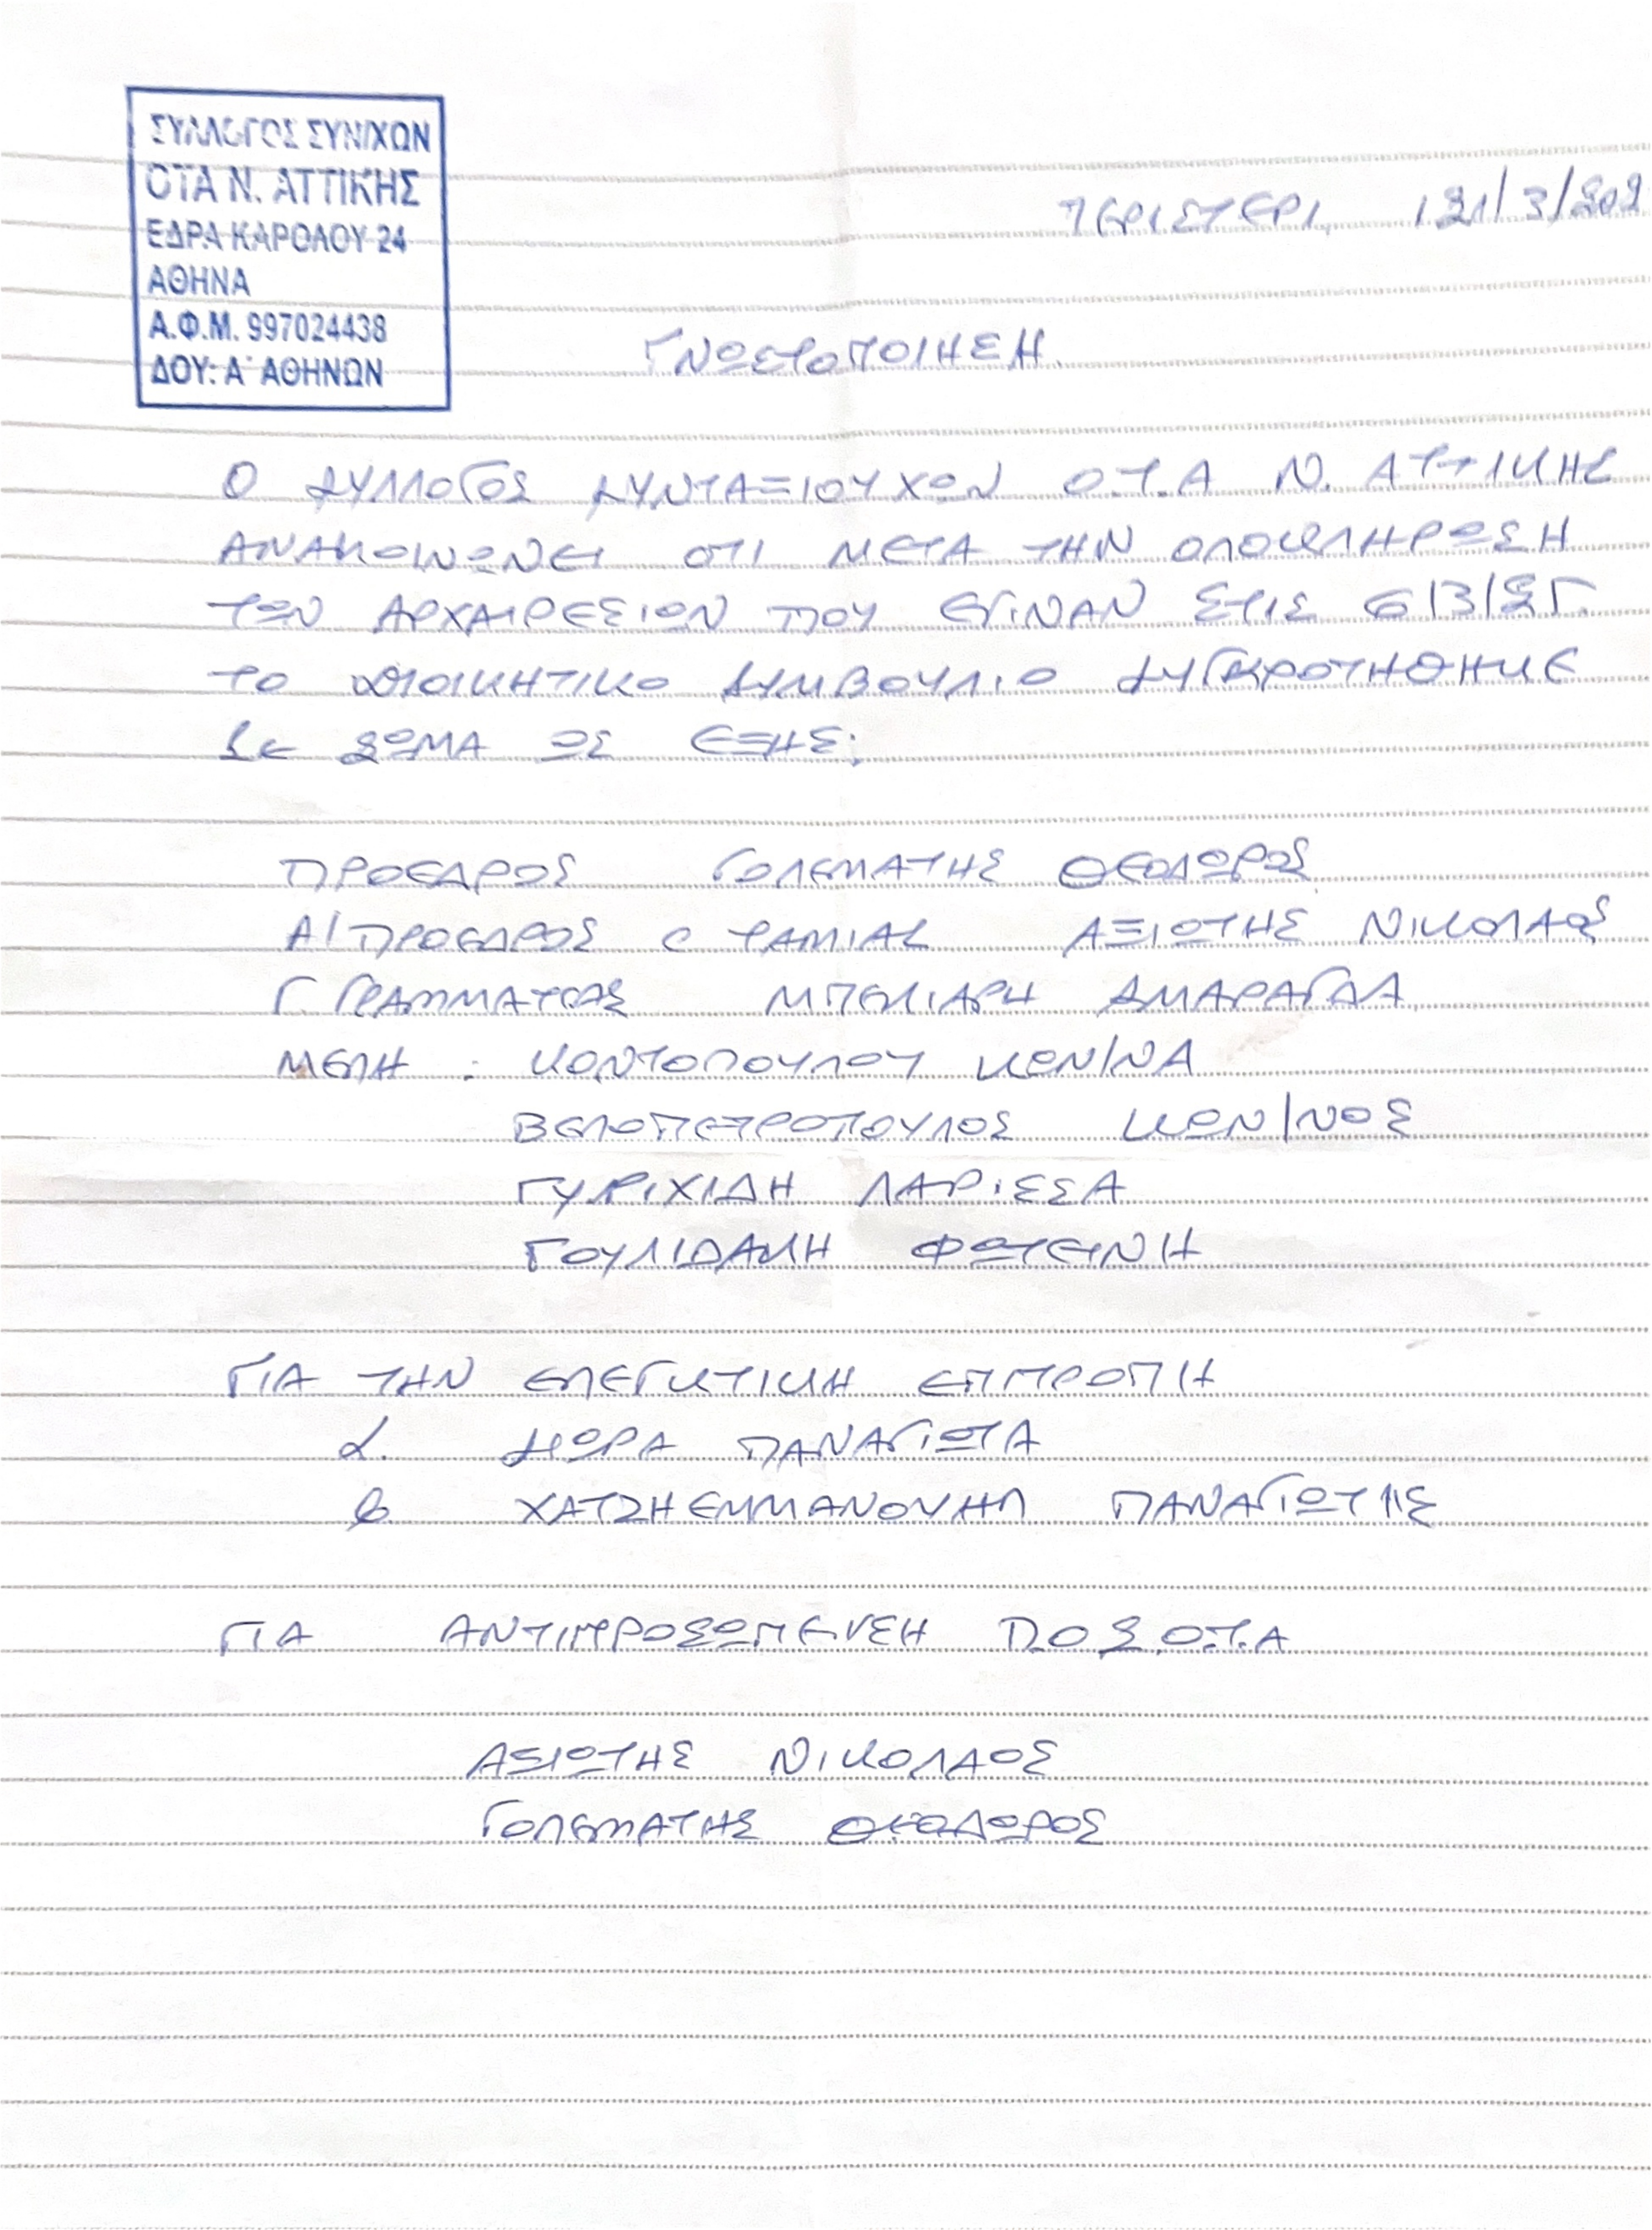 ΣΥΛΛΟΓΟΣ ΣΥΝ/ΧΩΝ
ΟΤΑ Ν. ΑΤΤΙΚΗΣ
ΕΔΡΑ ΚΑΡΟΛΟΥ 24
ΑΘΗΝΑ
Α.Φ.Μ. 997024438
ΔΟΥ: Α΄ ΑΘΗΝΩΝ
ΠΕΡΙΣΤΕΡΙ, 21/3/202
ΓΝΩΣΤΟΠΟΙΗΣΗ.
Ο ΣΥΛΛΟΓΟΣ ΣΥΝΤΑΞΙΟΥΧΩΝ Ο.Τ.Α Ν. ΑΤΤΙΚΗΣ
ΑΝΑΚΟΙΝΩΝΕΙ ΟΤΙ ΜΕΤΑ ΤΗΝ ΟΛΟΚΛΗΡΩΣΗ
ΤΩΝ ΑΡΧΑΙΡΕΣΙΩΝ ΠΟΥ ΕΓΙΝΑΝ ΣΤΙΣ 6/3/25.
ΤΟ ΔΙΟΙΚΗΤΙΚΟ ΣΥΜΒΟΥΛΙΟ ΣΥΓΚΡΟΤΗΘΗΚΕ
ΣΕ ΣΩΜΑ ΩΣ ΕΞΗΣ:
ΠΡΟΕΔΡΟΣ ΓΟΛΕΜΑΤΗΣ ΘΕΟΔΩΡΟΣ
Α/ΠΡΟΕΔΡΟΣ Ο ΤΑΜΙΑΣ ΑΞΙΩΤΗΣ ΝΙΚΟΛΑΟΣ
Γ. ΓΡΑΜΜΑΤΕΑΣ ΜΠΕΛΙΑΡΗ ΣΜΑΡΑΓΔΑ
ΜΕΛΗ : ΚΟΝΤΟΠΟΥΛΟΥ ΚΩΝ/ΝΑ
ΒΕΛΟΠΕΤΡΟΠΟΥΛΟΣ ΚΩΝ/ΝΟΣ
ΓΥΡΙΧΙΔΗ ΛΑΡΙΣΣΑ
ΓΟΥΛΙΔΑΚΗ ΦΩΤΕΙΝΗ
ΓΙΑ ΤΗΝ ΕΛΕΓΚΤΙΚΗ ΕΠΙΤΡΟΠΗ
α. ΠΑΝΑΓΙΩΤΑ
β ΧΑΤΖΗΕΜΜΑΝΟΥΗΛ ΠΑΝΑΓΙΩΤΗΣ
ΓΙΑ ΑΝΤΙΠΡΟΣΩΠΕΥΣΗ Π.Ο.Σ.Ο.Τ.Α
ΑΞΙΩΤΗΣ ΝΙΚΟΛΑΟΣ
ΓΟΛΕΜΑΤΗΣ ΘΕΟΔΩΡΟΣ